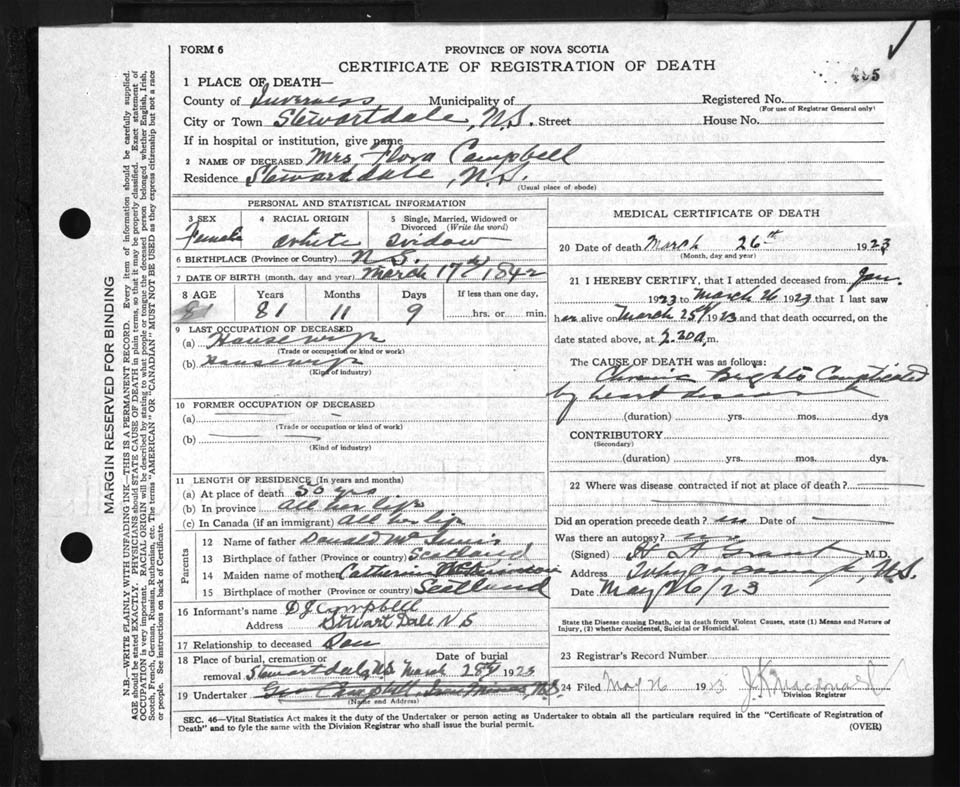 FORM 6
PROVINCE OF NOVA SCOTIA
CERTIFICATE OF REGISTRATION OF DEATH
1 PLACE OF DEATH—
County of Inverness Municipality of Registered No.
(For use of Registrar General only)
City or Town Stewartdale, N.S. Street House No.
If in hospital or institution, give name
2 NAME OF DECEASED Mrs Flora Campbell
Residence Stewartdale, N.S.
(Usual place of abode)
MARGIN RESERVED FOR BINDING
N.B.—WRITE PLAINLY WITH UNFADING INK—THIS IS A PERMANENT RECORD. Every item of information should be carefully supplied.
AGE should be stated EXACTLY. PHYSICIANS should STATE CAUSE OF DEATH in plain terms, so that it may be properly classified. Exact statement of
OCCUPATION is very important. RACIAL ORIGIN will be described by stating to what people or tongue the deceased person belonged whether English, Irish,
Scotch, French, German, Russian, Ruthenian, etc. The terms "AMERICAN" or "CANADIAN" MUST NOT BE USED as they express citizenship but not a race
or people. See instructions on back of Certificate.
PERSONAL AND STATISTICAL INFORMATION
3 SEX 4 RACIAL ORIGIN 5 Single, Married, Widowed or
Divorced (Write the word)
Female White Widow
6 BIRTHPLACE (Province or Country) N.S.
7 DATE OF BIRTH (month, day and year) March 17th 1842
8 AGE Years Months Days If less than one day,
81 81 11 9 hrs. or min.
9 LAST OCCUPATION OF DECEASED
(a) Housewife
(Trade or occupation or kind or work)
(b) Housewife
(Kind of industry)
10 FORMER OCCUPATION OF DECEASED
(a)
(Trade or occupation or kind of work)
(b)
(Kind of industry)
11 LENGTH OF RESIDENCE (In years and months)
(a) At place of death 50 yrs
(b) In province All her life
(c) In Canada (if an immigrant) All her life
Parents
12 Name of father Donald Mc
13 Birthplace of father (Province or country) Scotland
14 Maiden name of mother Catherine
15 Birthplace of mother (Province or country) Scotland
16 Informant's name D J Campbell
Address Stuart Dale N S
17 Relationship to deceased Son
18 Place of burial, cremation or Date of burial
removal Stewartdale, N.S. March 28th 1923
19 Undertaker Geo Campbell,
(Name and Address)
MEDICAL CERTIFICATE OF DEATH
20 Date of death March 26th 1923
(Month, day and year)
21 I HEREBY CERTIFY, that I attended deceased from Jan.
1923 to March 26 1923 that I last saw
her alive on March 25th 1923 and that death occurred, on the
date stated above, at 2.20 a.m.
The CAUSE OF DEATH was as follows:
Chronic Brights Complicated
by heart disease
(duration) yrs. mos. dys
CONTRIBUTORY
(Secondary)
(duration) yrs. mos. dys.
22 Where was disease contracted if not at place of death?
Did an operation precede death? no Date of
Was there an autopsy? no
(Signed) H A Grant M.D.
Address N.S.
Date May 26/23
State the Disease causing Death, or in death from Violent Causes, state (1) Means and Nature of
Injury, (2) whether Accidental, Suicidal or Homicidal.
23 Registrar's Record Number
24 Filed May 26 1923 J K Macdonald
Division Registrar
SEC. 46—Vital Statistics Act makes it the duty of the Undertaker or person acting as Undertaker to obtain all the particulars required in the "Certificate of Registration of
Death" and to fyle the same with the Division Registrar who shall issue the burial permit.
(OVER)